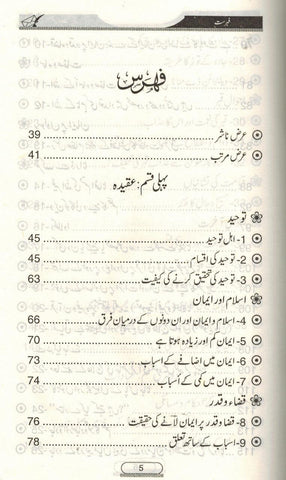 فہرست
فہرس
عرض ناشر ... 39
عرض مرتب ... 41
پہلی قسم: عقیدہ
توحید
1- اہل توحید ... 45
2- توحید کی اقسام ... 45
3- توحید کی تحقیق کرنے کی کیفیت ... 63
اسلام اور ایمان
4- اسلام و ایمان اور ان دونوں کے درمیان فرق ... 66
5- ایمان کم اور زیادہ ہوتا ہے ... 70
6- ایمان میں اضافے کے اسباب ... 73
7- ایمان میں کمی کے اسباب ... 74
قضاء و قدر
8- قضا و قدر پر ایمان لانے کی حقیقت ... 76
9- اسباب کے ساتھ تعلق ... 78
5